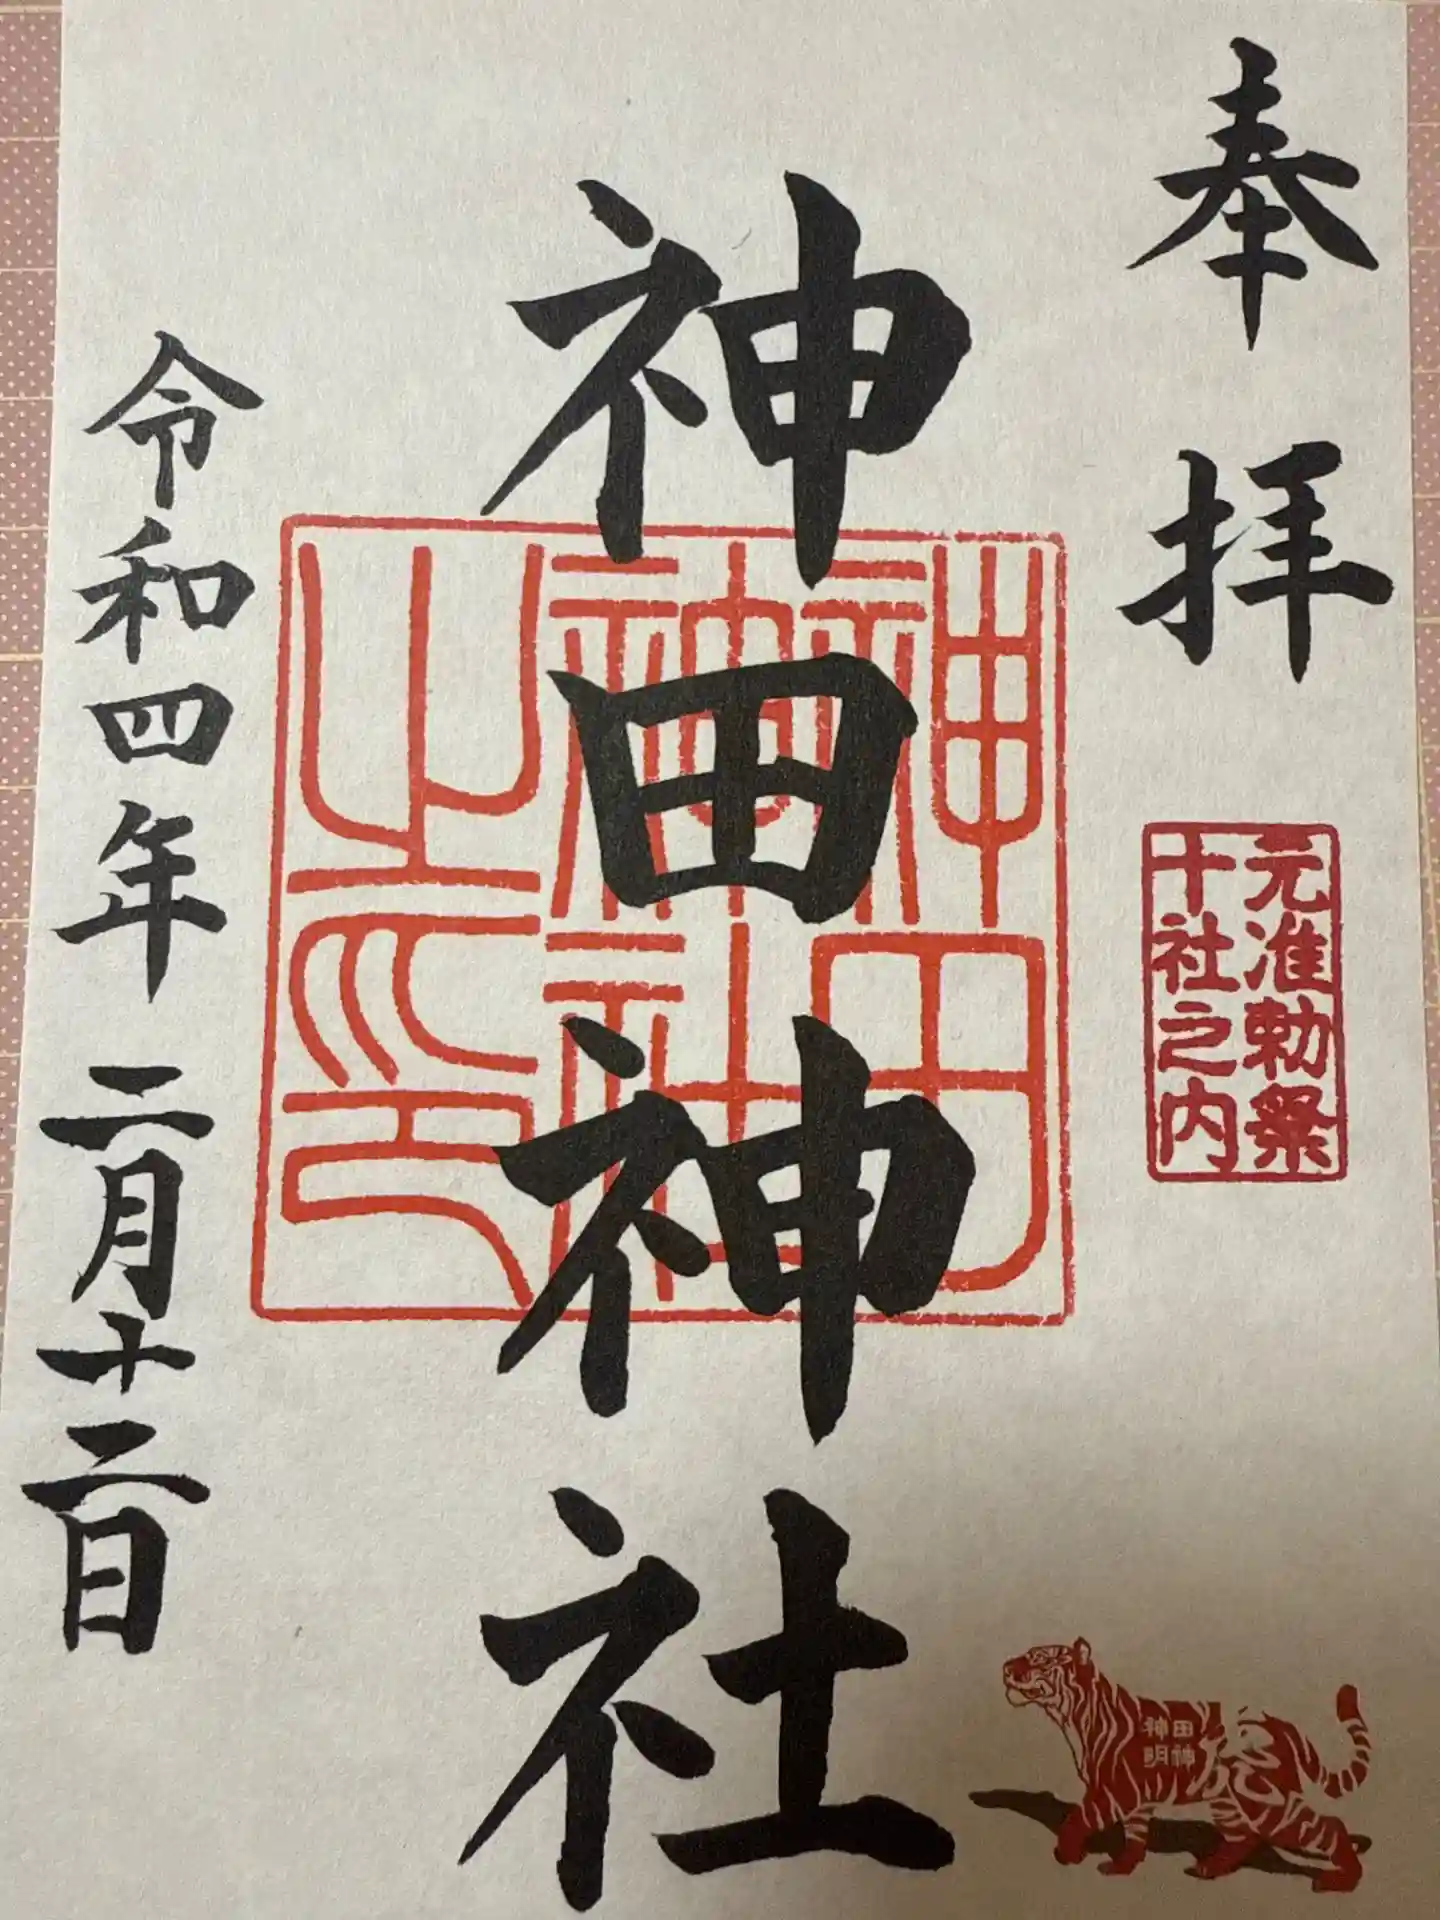 奉拝
元准勅祭
十社之内
神田神社
神田
神社
之印
令和四年二月十二日
田神
神明